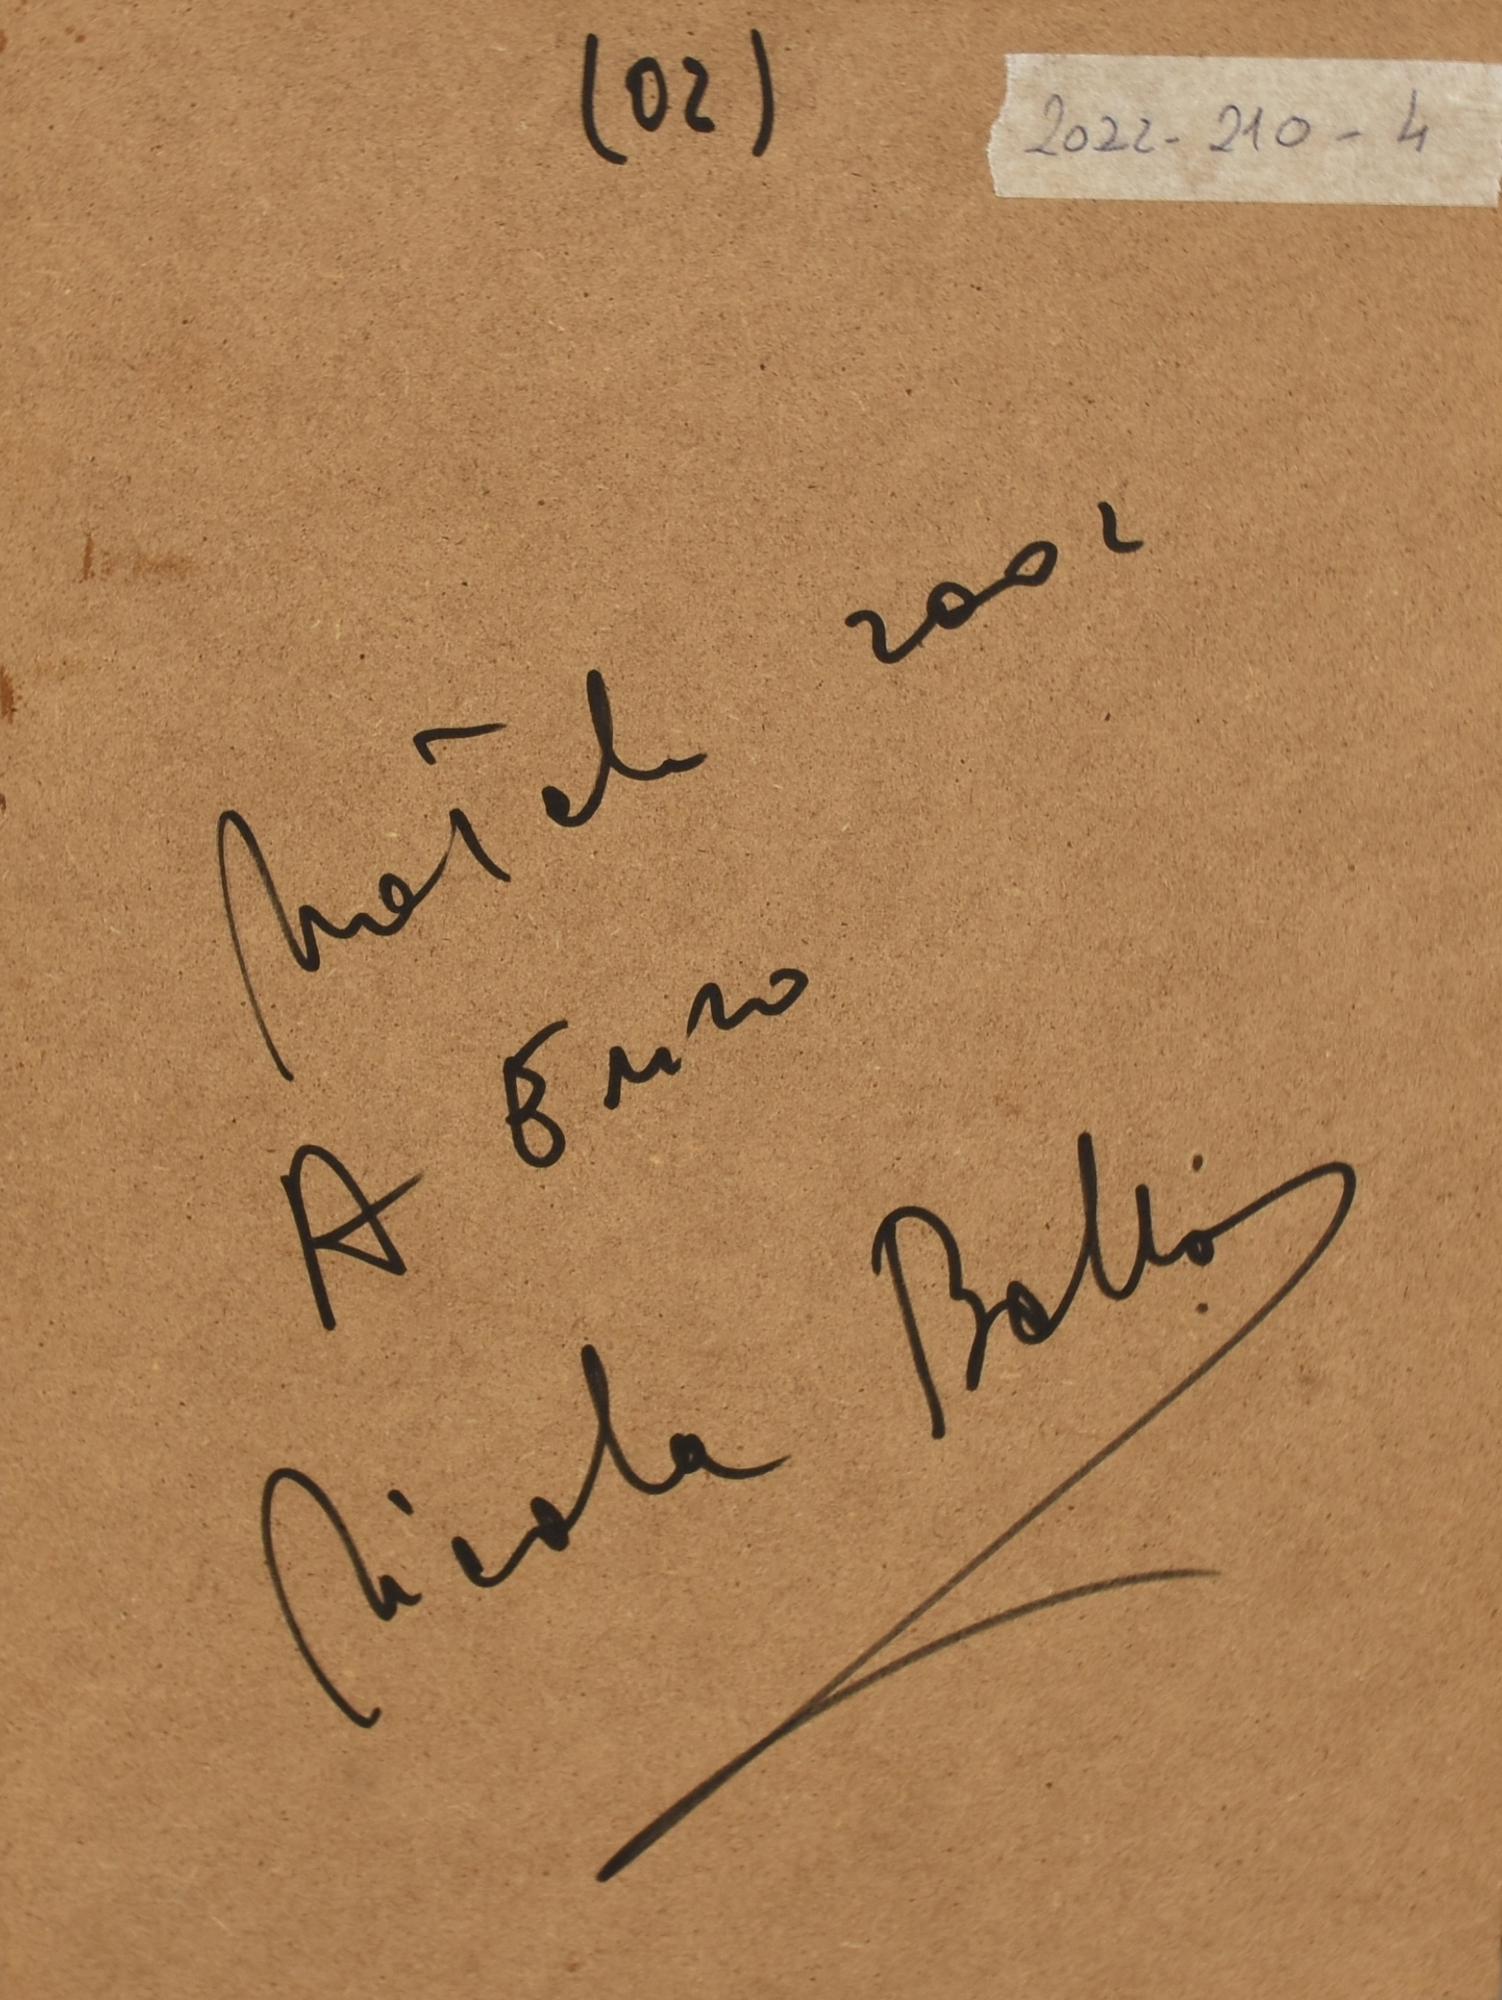 (02)
2022-210-4
Natale 2002
A Enzo
Nicola